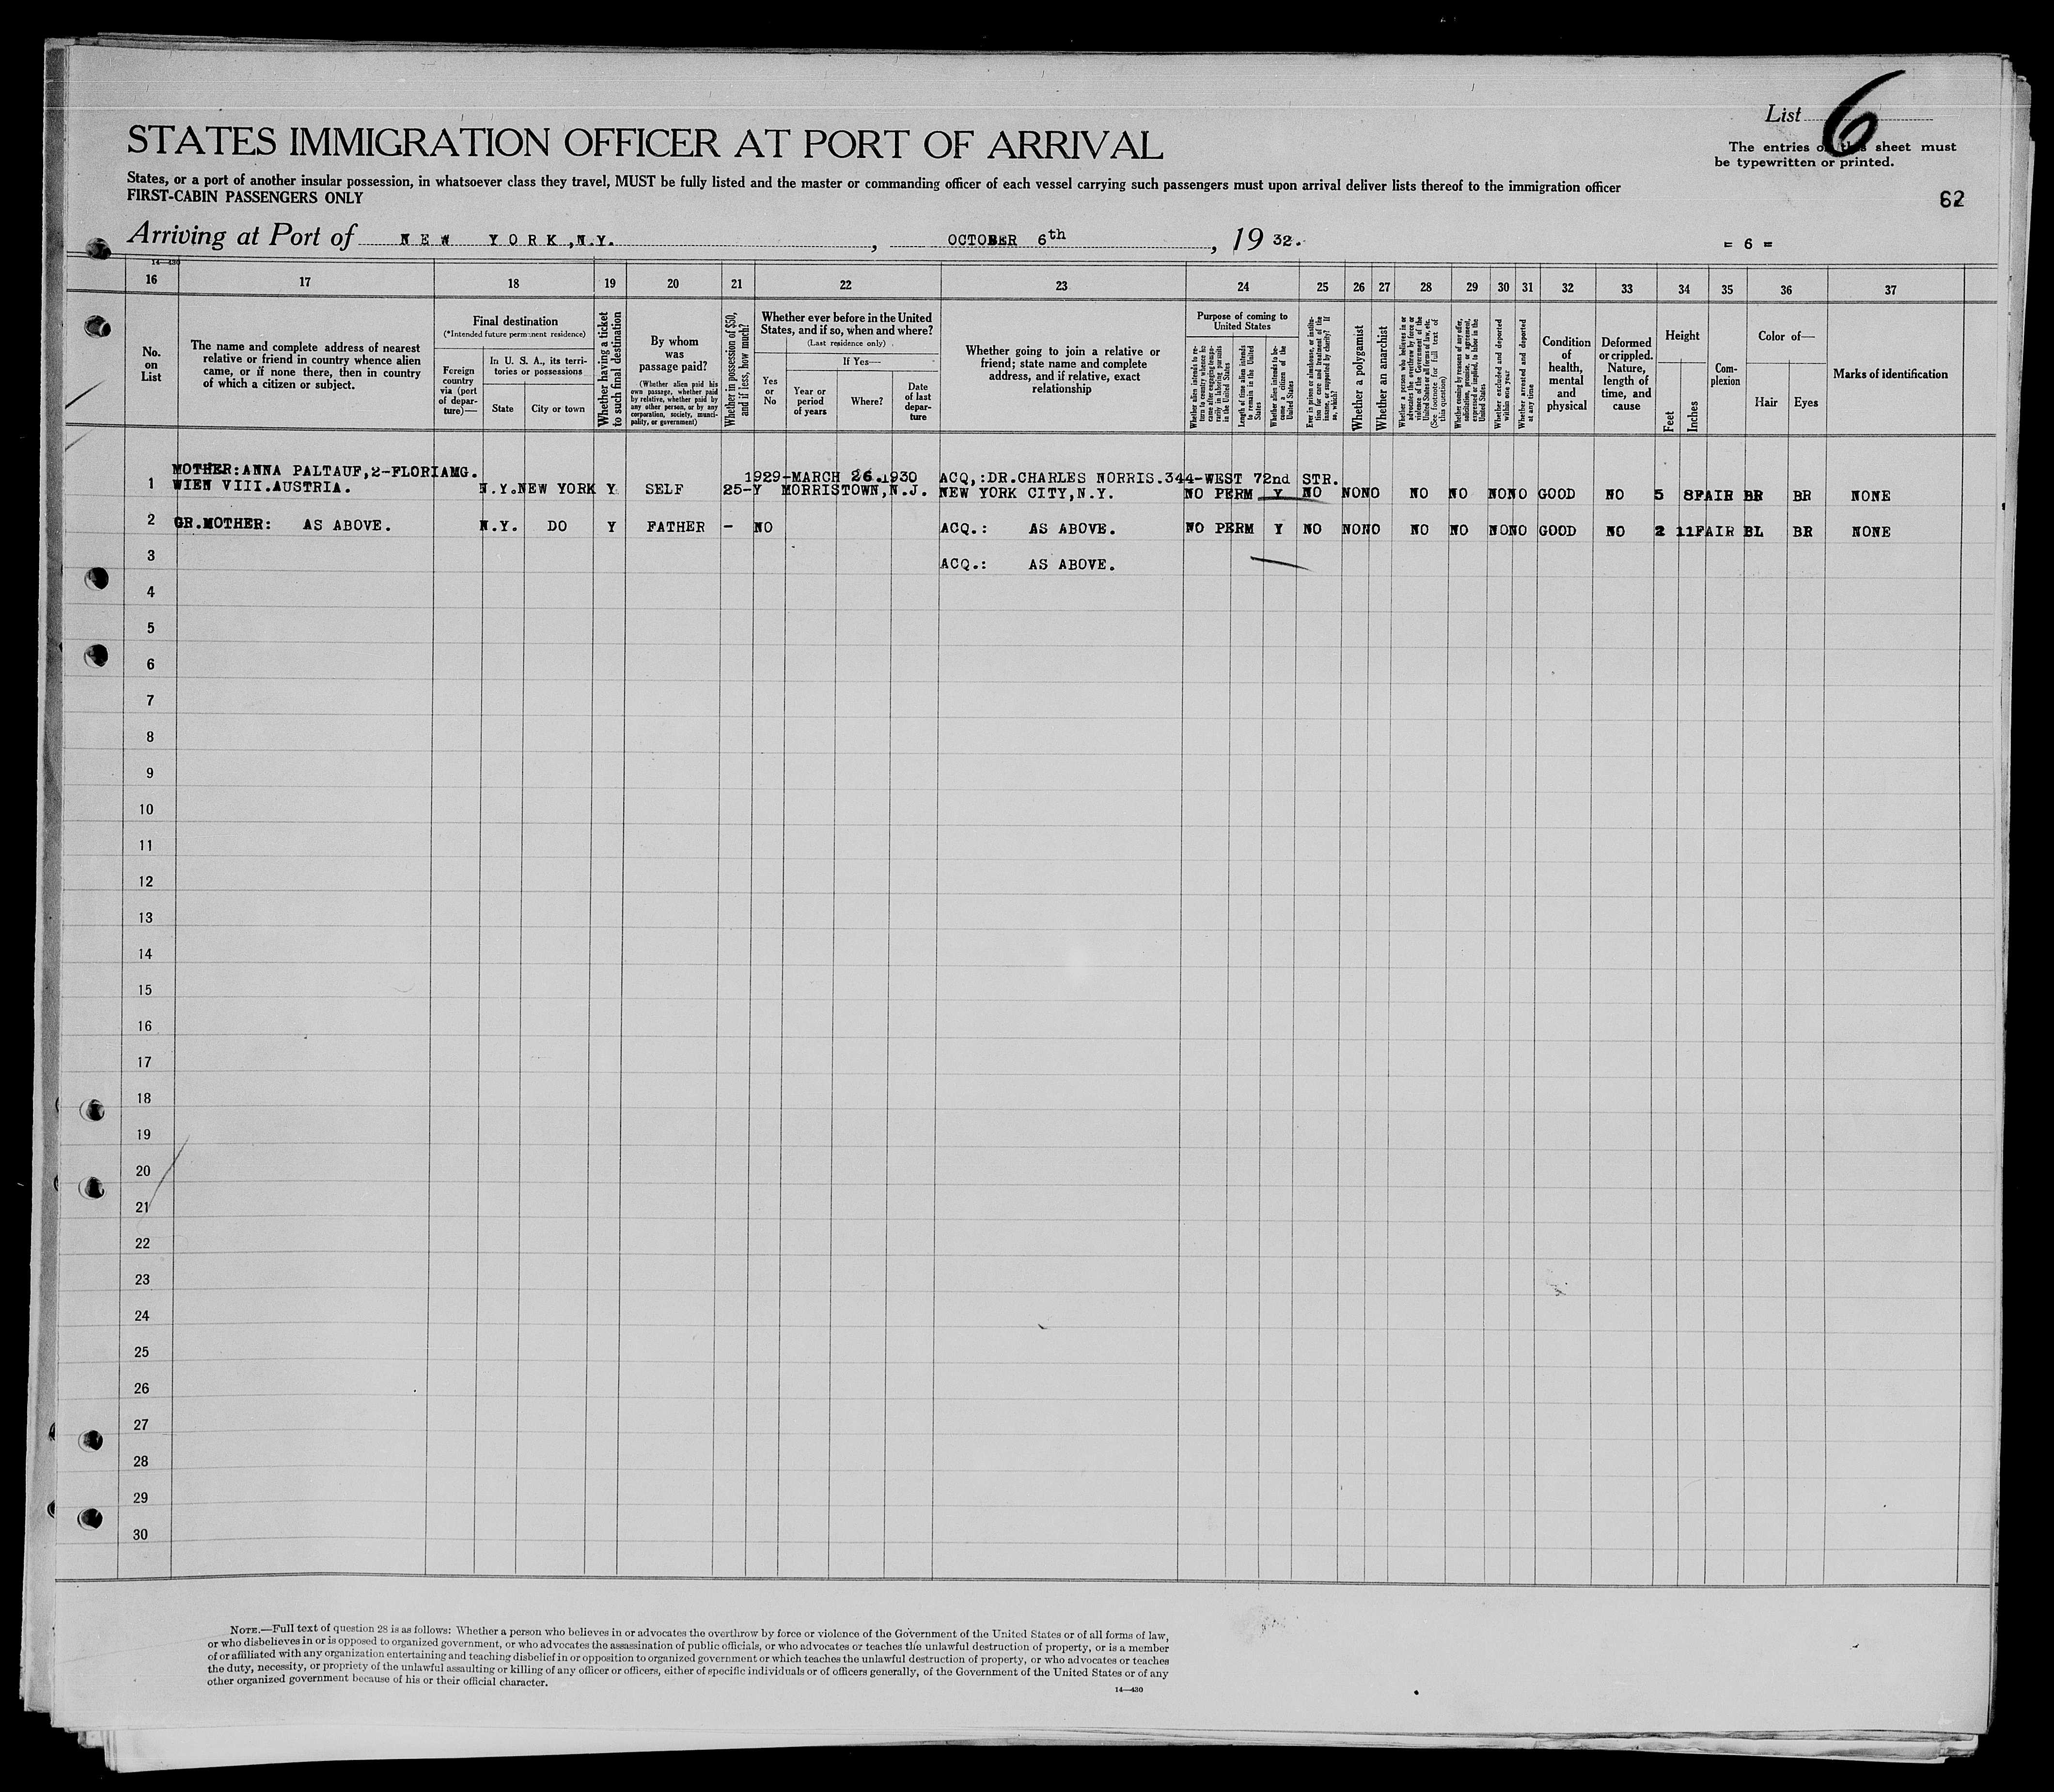 List 6
STATES IMMIGRATION OFFICER AT PORT OF ARRIVAL
The entries on this sheet must
be typewritten or printed.
States, or a port of another insular possession, in whatsoever class they travel, MUST be fully listed and the master or commanding officer of each vessel carrying such passengers must upon arrival deliver lists thereof to the immigration officer
FIRST-CABIN PASSENGERS ONLY
62
Arriving at Port of NEW YORK,N.Y. , OCTOBER 6th , 19 32.
= 6 =
14—430
16 17 18 19 20 21 22 23 24 25 26 27 28 29 30 31 32 33 34 35 36 37
No.
on
List
The name and complete address of nearest
relative or friend in country whence alien
came, or if none there, then in country
of which a citizen or subject.
Final destination
(*Intended future permanent residence)
Foreign
country
via (port
of depar-
ture)—
In U. S. A., its terri-
tories or possessions
State
City or town
Whether having a ticket
to such final destination
By whom
was
passage paid?
(Whether alien paid his
own passage, whether paid
by relative, whether paid by
any other person, or by any
corporation, society, munici-
pality, or government)
Whether in possession of $50,
and if less, how much?
Whether ever before in the United
States, and if so, when and where?
(Last residence only)
Yes
or
No
If Yes—
Year or
period
of years
Where?
Date
of last
depar-
ture
Whether going to join a relative or
friend; state name and complete
address, and if relative, exact
relationship
Purpose of coming to
United States
Whether alien intends to re-
turn to country whence he
came after engaging tempo-
rarily in laboring pursuits
in the United States
Length of time alien intends
to remain in the United
States
Whether alien intends to be-
come a citizen of the
United States
Ever in prison or almshouse, or institu-
tion for care and treatment of the
insane, or supported by charity? If
so, which?
Whether a polygamist
Whether an anarchist
Whether a person who believes in or
advocates the overthrow by force or
violence of the Government of the
United States or all forms of law, etc.
(See footnote for full text of
this question)
Whether coming by reason of any offer,
solicitation, promise, or agreement,
expressed or implied, to labor in the
United States
Whether excluded and deported
within one year
Whether arrested and deported
at any time
Condition
of
health,
mental
and
physical
Deformed
or crippled.
Nature,
length of
time, and
cause
Height
Feet
Inches
Com-
plexion
Color of—
Hair
Eyes
Marks of identification
MOTHER:ANNA PALTAUF,2-FLORIAMG. 1929-MARCH 26.1930 ACQ,:DR.CHARLES NORRIS.344-WEST 72nd STR.
1 WIEN VIII.AUSTRIA. N.Y.NEW YORK Y SELF 25-Y MORRISTOWN,N.J. NEW YORK CITY,N.Y. NO PERM Y NO NONO NO NO NONO GOOD NO 5 8FAIR BR BR NONE
2 GR.MOTHER: AS ABOVE. N.Y. DO Y FATHER - NO ACQ.: AS ABOVE. NO PERM Y NO NONO NO NO NONO GOOD NO 2 11FAIR BL BR NONE
3 ACQ.: AS ABOVE.
4
5
6
7
8
9
10
11
12
13
14
15
16
17
18
19
20
21
22
23
24
25
26
27
28
29
30
NOTE.—Full text of question 28 is as follows: Whether a person who believes in or advocates the overthrow by force or violence of the Government of the United States or of all forms of law,
or who disbelieves in or is opposed to organized government, or who advocates the assassination of public officials, or who advocates or teaches the unlawful destruction of property, or is a member
of or affiliated with any organization entertaining and teaching disbelief in or opposition to organized government or which teaches the unlawful destruction of property, or who advocates or teaches
the duty, necessity, or propriety of the unlawful assaulting or killing of any officer or officers, either of specific individuals or of officers generally, of the Government of the United States or of any
other organized government because of his or their official character.
14—430